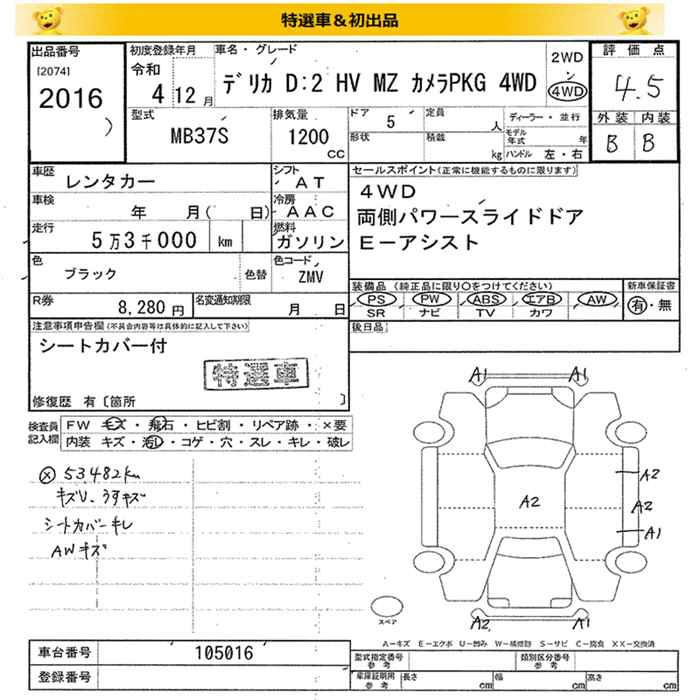 特選車＆初出品
出品番号
[2074]
2016
初度登録年月
令和
4 12月
車名・グレード
デリカ D:2 HV MZ カメラPKG 4WD
2WD
4WD
評価点
4.5
外装 内装
B B
型式
MB37S
排気量
1200
CC
ドア
5
定員
人
形状
積載
kg
ディーラー・並行
モデル年式 年
ハンドル 左・右
車歴
レンタカー
シフト
AT
車検
年 月( 日)
冷房
AAC
走行
5万3千000 km
燃料
ガソリン
色
ブラック
色替
色コード
ZMV
R券
8,280円
名変通知期限
月 日
セールスポイント(正常に機能するものに限ります)
4WD
両側パワースライドドア
E－アシスト
装備品 (純正品に限り○をつけてください)
PS PW ABS エアB AW
SR ナビ TV カワ
新車保証書
有・無
後日品
注意事項申告欄(不具合内容等は具体的に記入して下さい)
シートカバー付
特選車
修復歴 有〔箇所 〕
検査員記入欄
FW キズ・飛石・ヒビ割・リペア跡・×要
内装 キズ・汚レ・コゲ・穴・スレ・キレ・破レ
ⓧ 53,482km
キズU、うすキズ
シートカバーキレ
AWキズ
A1 A1
A2
A2
A2
A1
A2 A1
スペア
A－キズ E－エクボ U－凹み W－補修跡 S－サビ C－腐食 XX－交換済
車台番号
105016
登録番号
型式指定番号
参考
類別区分番号
参考
車庫証明用
参考
長さ cm
幅 cm
高さ cm